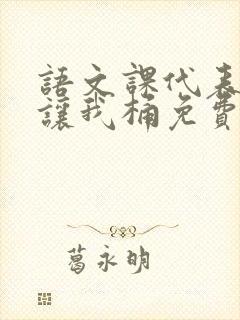 語文課代表
讓我桶免費
葛永明